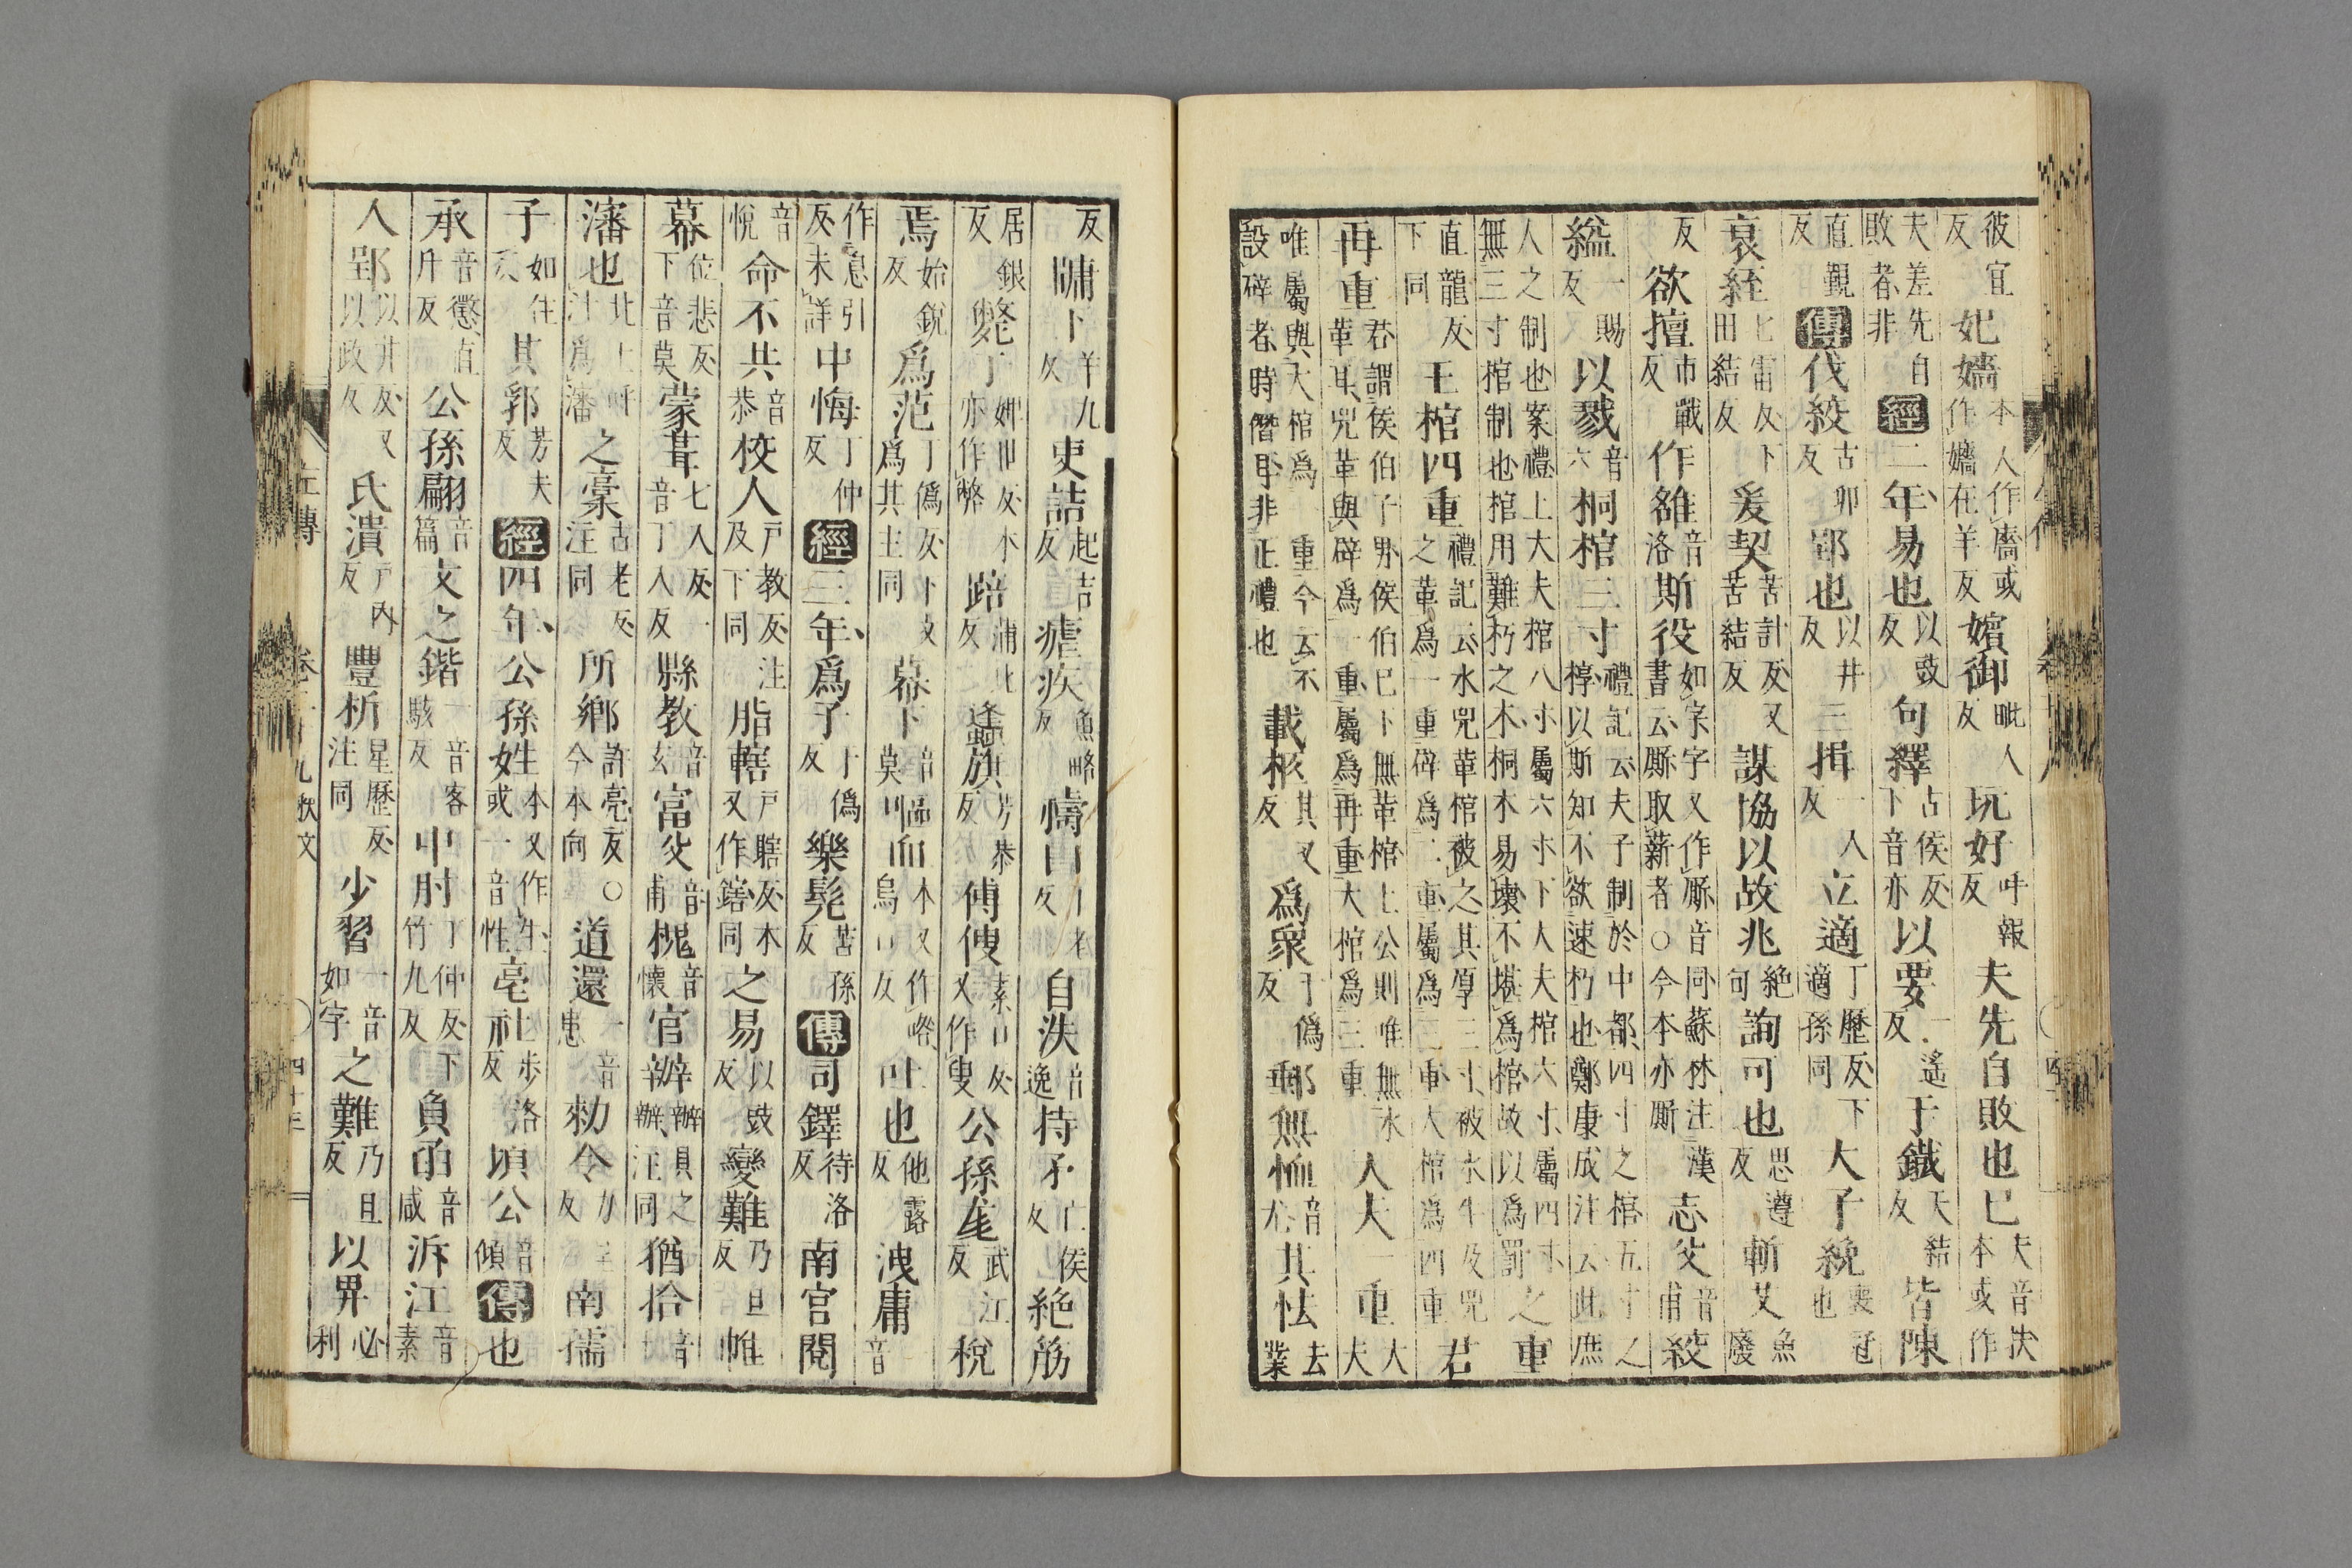 彼宜反妃嬙本又作廧或作嬙在羊反嬪御毗人反玩好呼報反夫先自敗也已夫音扶本或作
夫差先自敗者非經二年易也以豉反句繹古侯反下音亦以要一遙反于鐵天結反皆陳
直覲反傳伐絞古卯反郢也以井反三揖一入反立適丁歷反下適孫同大子絻喪冠也
衰絰七雷反下田結反爰契苦計反又苦結反謀協以故兆絶句詢可也思遵反斬艾魚廢
反欲擅市戰反作雒音洛斯役如字字又作厮音同蘇林注漢書云厮取薪者○今本亦厮志父音甫絞
縊一賜反以戮音六桐棺三寸禮記云夫子制於中都四寸之棺五寸之椁以斯知不欲速朽也鄭康成注云此庶
人之制也案禮上大夫棺八寸屬六寸下大夫棺六寸屬四寸無三寸棺制也棺用難朽之木桐木易壞不堪爲棺故以爲罰之重
直龍反下同王棺四重禮記云水兕革棺被之其厚三寸被水牛及兕之革爲一重辟爲二重屬爲三重大棺爲四重君
再重君謂侯伯子男侯伯已下無革棺上公則唯無水革耳兕革與辟爲一重屬爲再重大棺爲三重大夫一重大夫
唯屬與大棺爲一重今云不設辟者時僭耳非正禮也載柩其又反爲衆于僞反郵無恤音尤其怯去業
反牗下羊九反吏詰起吉反瘧疾魚略反禱曰丁老反自泆音逸持矛亡侯反絶筋
居銀反斃于婢世反本亦作獘踣蒲北反蠭旗芳恭反傅傁素口反又作叟公孫尨武江反稅
焉始銳反爲范丁僞反下文爲其主同幕下音莫嘔血本又作㗂烏口反吐也他露反洩庸音
作息引反末詳中悔丁仲反經三年爲子于僞反樂髡苦孫反傳司鐸待洛反南宮閱
音悅命不共音恭校人戶教反注及下同脂轄戶瞎反本又作鎋同之易以豉反變難乃旦反帷
幕位悲反下音莫蒙葺七入反一音丁入反縣教音玄富父音甫槐音懷官辦辦具之辦注同猶拾音
瀋也北土呼汁爲瀋之稾古老反注同所鄉許亮反○今本向道還一音患勑令力呈反南孺
子如住反其郛芳夫反經四年公孫姓本又作生或一音性亳社步洛反頃公音傾傳也
承音懲直升反公孫翩音篇文之鍇音客一音駭反中肘丁仲反下竹九反負函音咸泝江音素
人郢以井反又以政反氏潰戶內反豐析星歷反注同少習一音如字之難乃旦反以畀必利
左傳